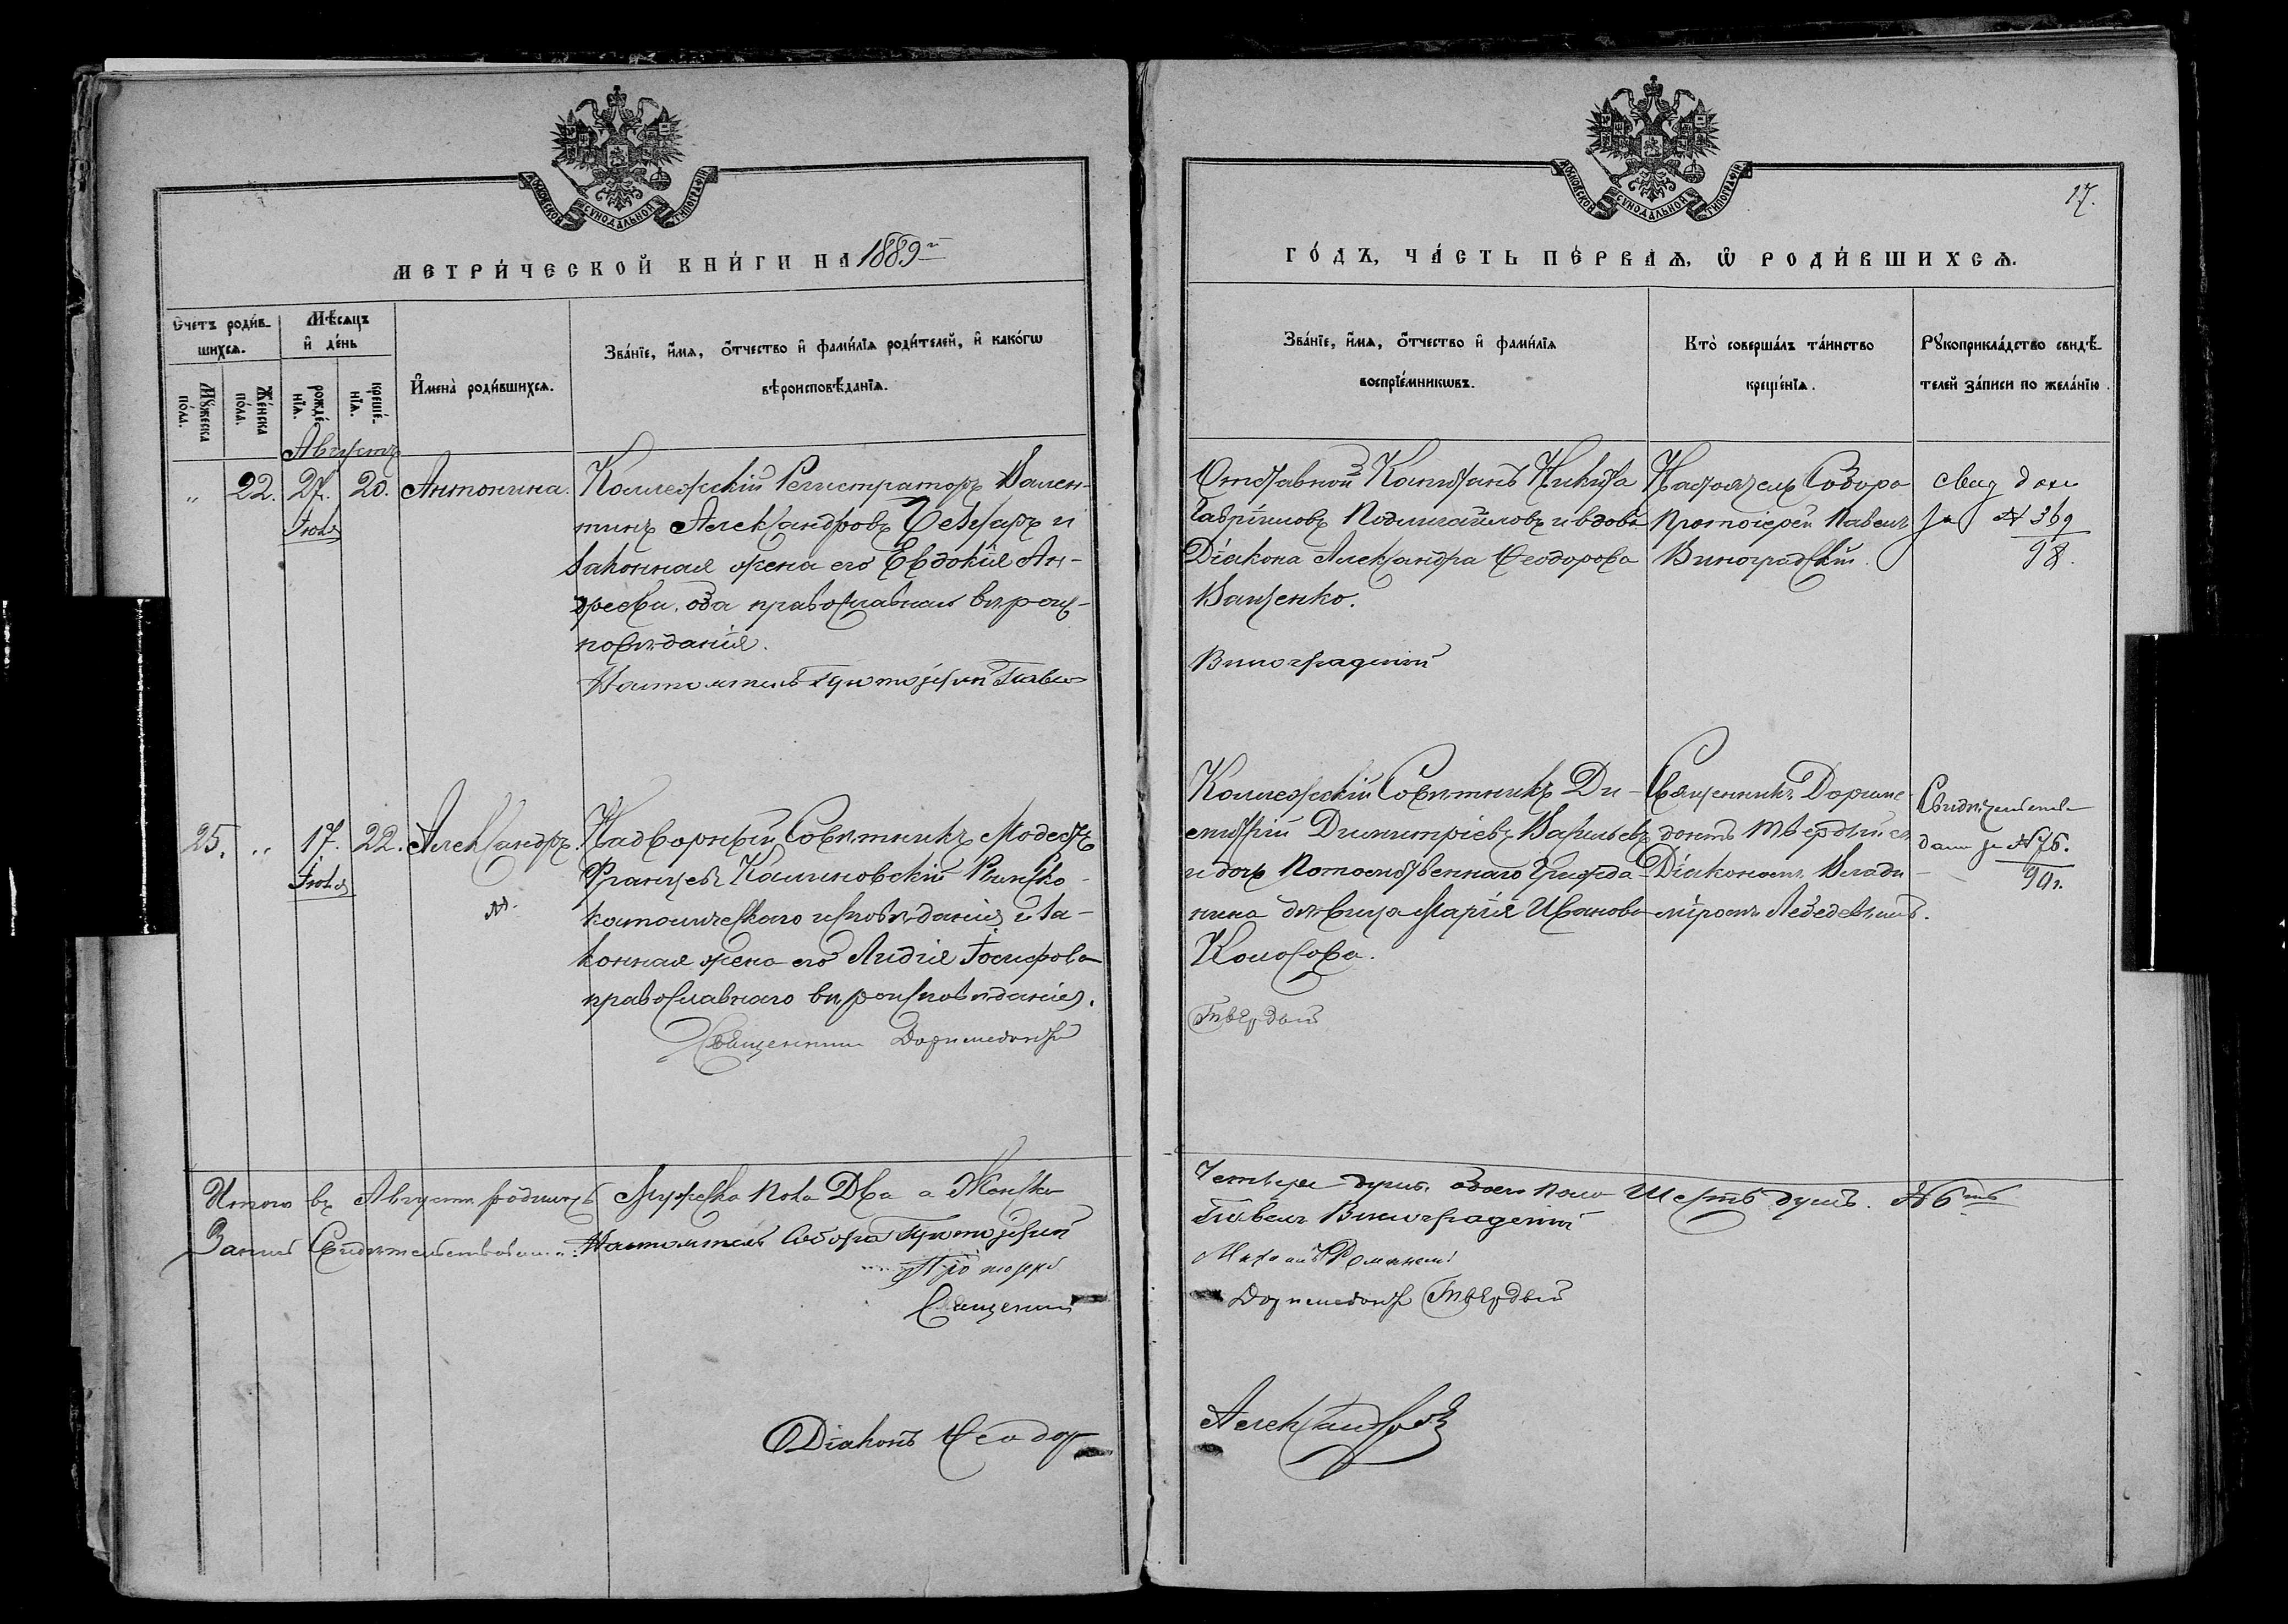 МОСКОВСКОЙ СѴНОДАЛЬНОЙ ТИПОГРАФІИ
МЕТРИ́ЧЕСКОЙ КНИ́ГИ НА 1889й
Счетъ роди́в-
шихсѧ.
Мѣ́сѧцъ
и҆ де́нь
Мꙋ́жеска
по́ла.
Же́нска
по́ла.
рожде́-
нїѧ.
креще́-
нїѧ.
И҆мена̀ роди́вшихсѧ.
Зва́нїе, и҆́мѧ, ѻ҆́тчество и҆ фами́лїѧ роди́телей, и҆ како́гѡ
вѣроисповѣ́данїѧ.
Августъ
„ 22. 27. 20. Антонина.
Іюля
Коллежскій Регистраторъ Вален-
тинъ Александровъ и
законная жена его Евдокія Ан-
дреева, оба православнаго вѣроис-
повѣданія.
Настоятель Протоіерей Павел
25. „ 17. 22. Александръ.
Іюля
Надворный Совѣтникъ Модестъ
Францевъ Калиновскій Римско-
католическаго исповѣданія и за-
конная жена его Лидія Іосифова
православнаго вѣроисповѣданія.
Священник Доримедонт
Итого въ Августѣ родилось Мужеска пола Два а Женска
Запись Свидѣтельствовали: Настоятель Собора Протоіерей
Протоіерей
Священник
Діаконъ Ѳеодор
МОСКОВСКОЙ СѴНОДАЛЬНОЙ ТИПОГРАФІИ
17.
ГО́ДЪ, ЧА́СТЬ ПЕ́РВАѦ, Ѡ҆ РОДИ́ВШИХСѦ.
Зва́нїе, и҆́мѧ, ѻ҆́тчество и҆ фами́лїѧ
воспрїе́мникѡвъ.
Кто̀ соверша́лъ та́инство
креще́нїѧ.
Рꙋкоприкла́дство свидѣ́-
телей за́писи по жела́нїю.
Отставной Капитанъ Никита
Гавріиловъ и вдова
Діакона Александра Ѳеодорова
Ваценко.
Виноградскій
Настоятель Собора
Протоіерей Павелъ
Виноградскій.
свид дано
за № 369
98.
Коллежскій Совѣтникъ Ди-
митрій Димитріевъ Васильевъ
и дочь Потомственнаго Гражда-
нина дѣвица Марія Иванова
Колосова.
Твердый
Священникъ Дориме-
донтъ Твердый съ
Діакономъ Влади-
міромъ Лебедевымъ.
Свидѣтельство
дано за № 76.
90 г.
Четыре душъ, обоего пола Шесть душъ. № 6ть
Павелъ Виноградскій
Доримедонт Твердый
Александровъ